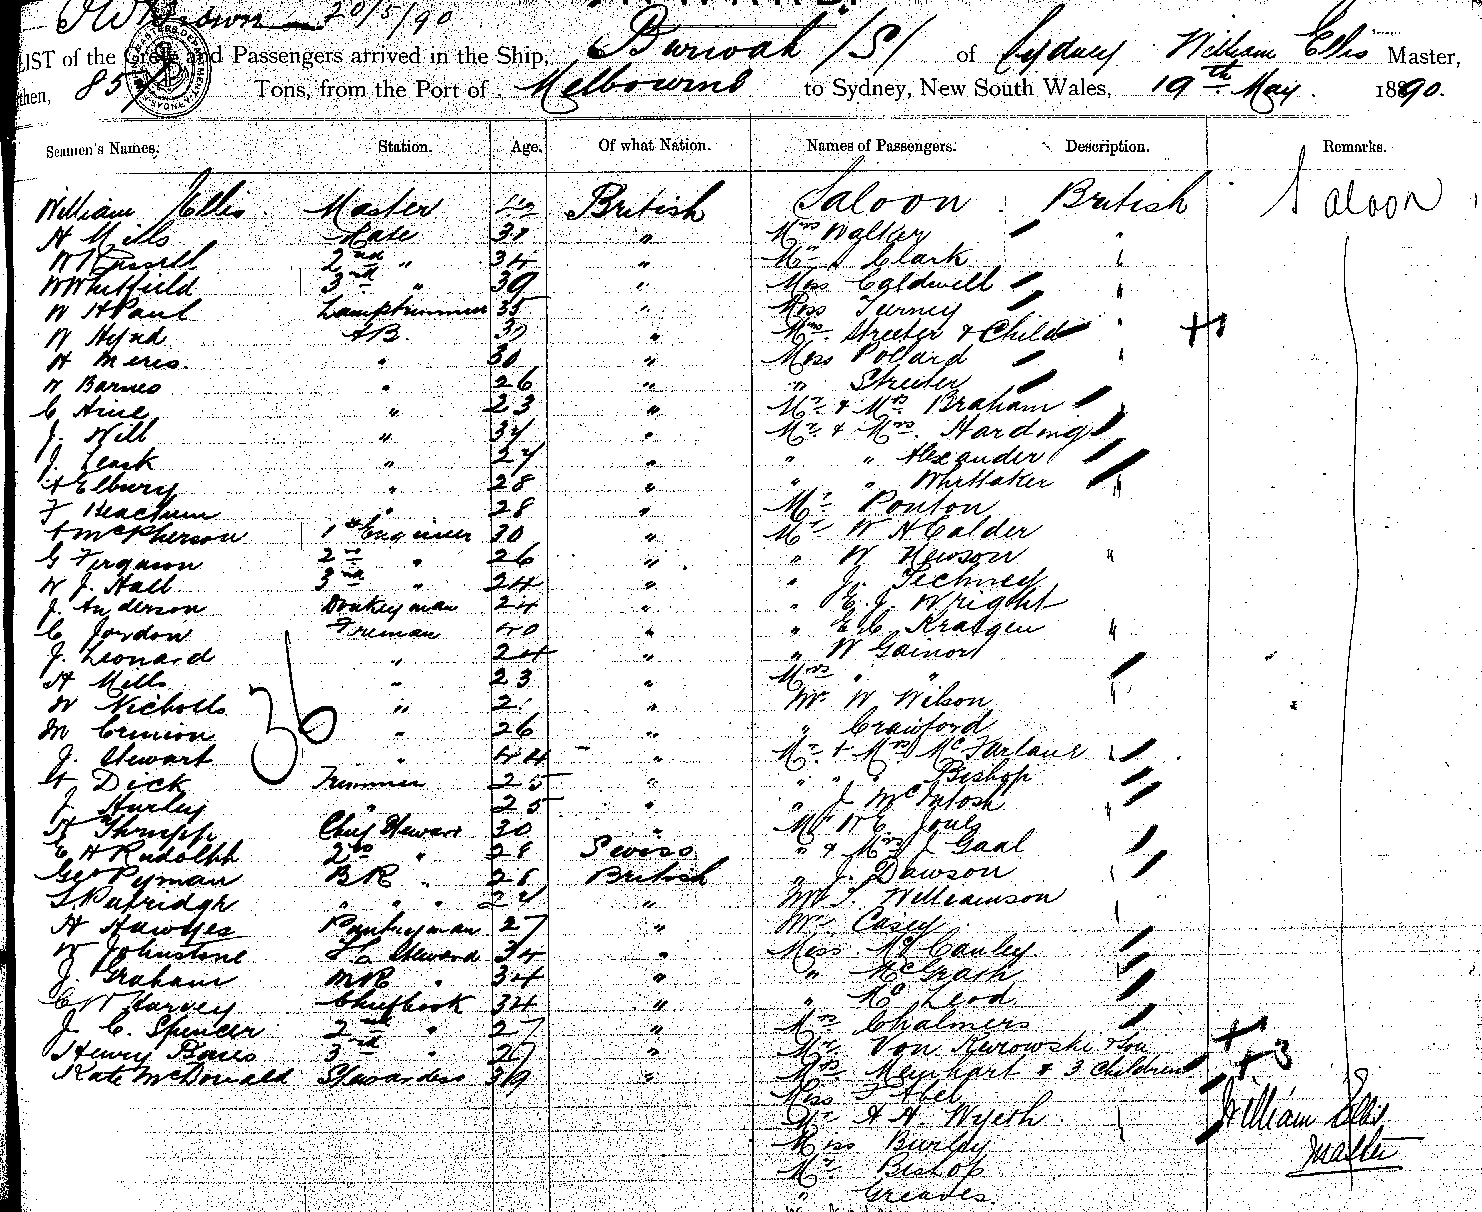 20/5/90
LIST of the Crew and Passengers arrived in the Ship, Burwah /S/ of Sydney William Ellis Master,
then, 857 Tons, from the Port of Melbourne to Sydney, New South Wales, 19th May. 1890.
Seamen's Names. Station. Age. Of what Nation. Names of Passengers. Description. Remarks.
William Ellis Master British Saloon British Saloon
H Mills Mate 38 " Mrs Walker "
W Russell 2nd " 34 " Mr Clark "
W Whitfield 3rd " 39 " Miss Caldwell "
W H Paul Lamptrimmer 35 " Miss Turney
W Hynd AB. " Mrs Streeter & Child " +1
H Meris. " 30 " Miss Pollard "
W Barnes " 26 " " Streeter
C Hine " 23 " Mr & Mrs Braham "
J. Will " 37 " Mr & Mrs. Harding
J. Leask " 27 " " " Alexander
A Elbury " 28 " " " Whittaker "
F Beacham " 28 " Mr Ponton
A McPherson 1st Engineer 30 " Mr W H Calder
G Ferguson 2nd " 26 " " W Newson "
W J. Hall 3rd " 24 " " J.
J. Anderson Donkeyman 24 " " E. J. Wright
C Jordon Fireman 40 " " E C "
J. Leonard " 24 " " W Gainor
H Mills " 23 " Mrs " "
W Nicholls " " Mr W Wilson "
M " 26 " " Crawford
J. Stewart " 44 " Mr & Mrs McFarlane
A Dick Trimmer 25 " " " " Bishop
J. Hurley " 25 " " J McIntosh
H Thrupp Chief Steward 30 " Mr W E. Jones
E H Rudolph 2nd " 28 Swiss " & Mrs J Gaal
Geo Pyman BR " 28 British " J. Dawson
S Patridge " " " " Mr T. Williamson
H Hawkes Pantryman 27 " Mr Casey
W Johnstone Steward 34 " Miss McCauley
J. Graham MR " 34 " " McGrath
C W Harvey Chief Cook 34 " " McLeod
J. C. Spencer 2nd " 27 " Mrs Chalmers
Henry Bares 3rd " 27 " Mr Von Kurowski & Son +1
Kate McDonald Stewardess 39 " Mrs Meinhart & 3 Children +3
36
Miss F Abel
Mr A A. Wyeth
Miss Burley
Mr Bishop
" Greaves.
William Ellis
Master